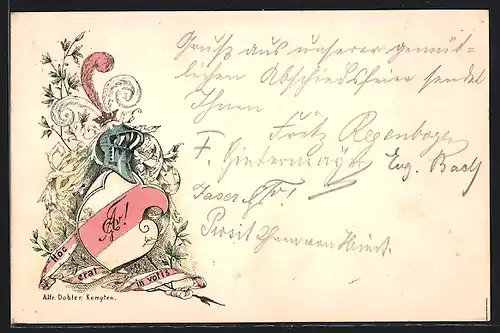 Gruß aus unserer gemüt-
lichen Abschiedsfeier sendet
Ihnen
Fritz Regenbogen
F. Hintermayr Eug. Bach
Prosit
Hoc
erat
in votis
Alfr. Dobler, Kempten.